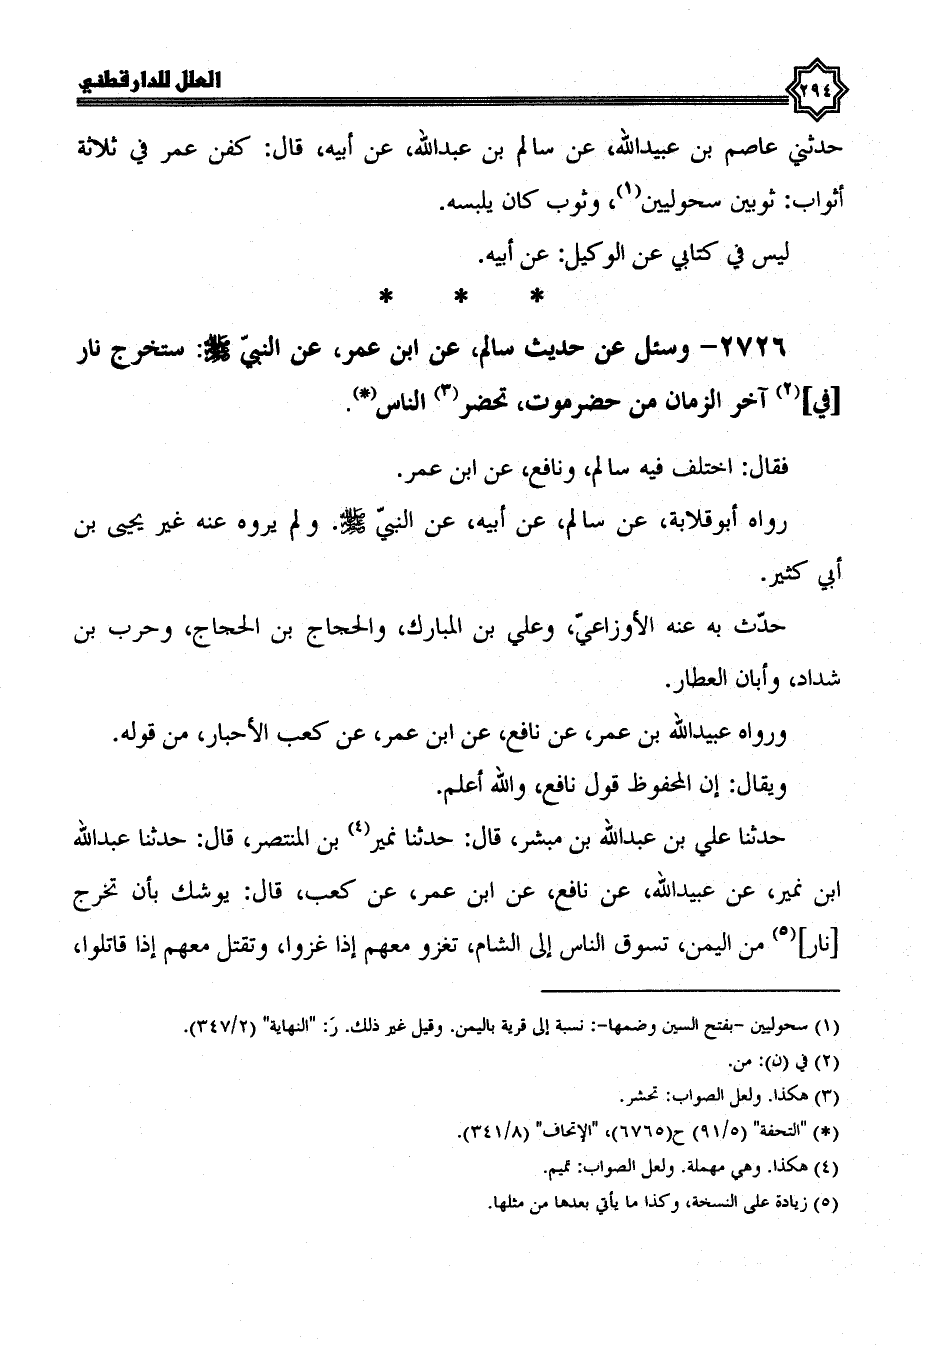 العلل للدارقطني
٢٩٤
حدثني عاصم بن عبيدالله، عن سالم بن عبدالله، عن أبيه، قال: كفن عمر في ثلاثة
أثواب: ثوبين سحوليين(١)، وثوب كان يلبسه.
ليس في كتابي عن الوكيل: عن أبيه.
* * *
٢٧٢٦- وسئل عن حديث سالم، عن ابن عمر، عن النبيّ ﷺ: ستخرج نار
[في](٢) آخر الزمان من حضرموت، تحضر(٣) الناس(*).
فقال: اختلف فيه سالم، ونافع، عن ابن عمر.
رواه أبوقلابة، عن سالم، عن أبيه، عن النبيّ ﷺ. ولم يروه عنه غير يحيى بن
أبي كثير.
حدّث به عنه الأوزاعيّ، وعلي بن المبارك، والحجاج بن الحجاج، وحرب بن
شداد، وأبان العطار.
ورواه عبيدالله بن عمر، عن نافع، عن ابن عمر، عن كعب الأحبار، من قوله.
ويقال: إن المحفوظ قول نافع، والله أعلم.
حدثنا علي بن عبدالله بن مبشر، قال: حدثنا نمير(٤) بن المنتصر، قال: حدثنا عبدالله
ابن نمير، عن عبيدالله، عن نافع، عن ابن عمر، عن كعب، قال: يوشك بأن تخرج
[نار](٥) من اليمن، تسوق الناس إلى الشام، تغزو معهم إذا غزوا، وتقتل معهم إذا قاتلوا،
(١) سحوليين -بفتح السين وضمها-: نسبة إلى قرية باليمن. وقيل غير ذلك. رَ: "النهاية" (٣٤٧/٢).
(٢) في (ن): من.
(٣) هكذا. ولعل الصواب: تحشر.
(*) "التحفة" (٩١/٥) ح(٦٧٦٥)، "الإتحاف" (٣٤١/٨).
(٤) هكذا. وهي مهملة. ولعل الصواب: تميم.
(٥) زيادة على النسخة، وكذا ما يأتي بعدها من مثلها.